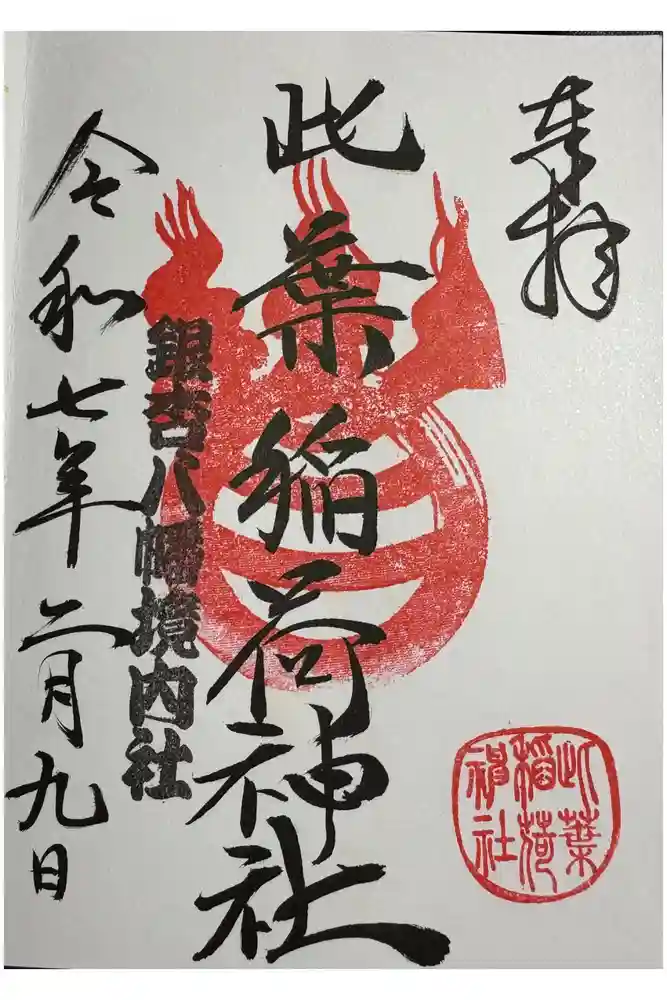 奉拝
此葉稲荷神社
銀杏八幡境内社
令和七年二月九日
此葉
稲荷
神社